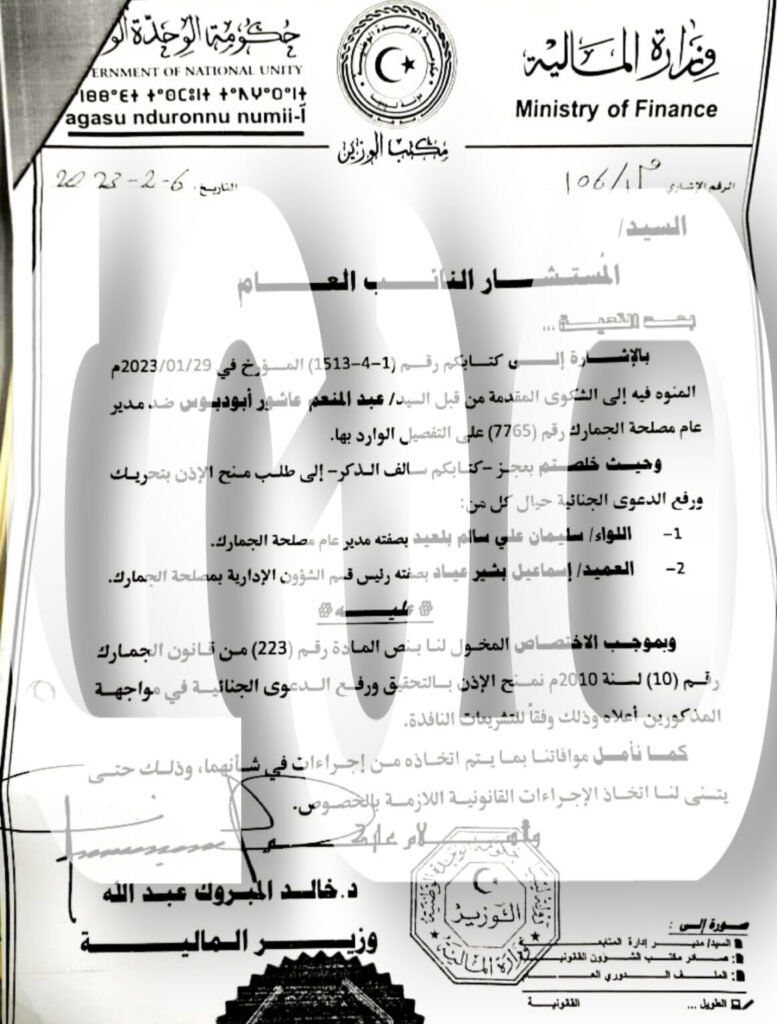 حكومة الوحدة الو
ERNMENT OF NATIONAL UNITY
agasu nduronnu numii-Ī
وزارة المالية
Ministry of Finance
مكتب الوزير
الرقم الإشاري
التاريخ: 6-2-2023
السيد/
المُستشار النائب العام
بعد التحية ...
بالإشارة إلى كتابكم رقم (1-4-1513) المؤرخ في 2023/01/29م
المنوه فيه إلى الشكوى المقدمة من قبل السيد/ عبد المنعم عاشور أبودبوس ضد مدير
عام مصلحة الجمارك رقم (7765) على التفصيل الوارد بها.
وحيث خلصتم بعجز –كتابكم سالف الذكر– إلى طلب منح الإذن بتحريك
ورفع الدعوى الجنائية حيال كل من:
1- اللواء/ سليمان علي سالم بلعيد بصفته مدير عام مصلحة الجمارك.
2- العميد/ إسماعيل بشير عياد بصفته رئيس قسم الشؤون الإدارية بمصلحة الجمارك.
# عليه #
وبموجب الاختصاص المخول لنا بنص المادة رقم (223) من قانون الجمارك
رقم (10) لسنة 2010م نمنح الإذن بالتحقيق ورفع الدعوى الجنائية في مواجهة
المذكورين أعلاه وذلك وفقاً للتشريعات النافذة.
كما نأمل موافاتنا بما يتم اتخاذه من إجراءات في شأنهما، وذلك حتى
يتسنى لنا اتخاذ الإجراءات القانونية اللازمة بالخصوص.
د. خالد المبروك عبد الله
وزير المالية
الوزير
وزارة المالية
صورة إلى :
السيد/ مدير إدارة المتابعة
مكتب الشؤون القانونية
الملف الدوري العام
الطويل ... القانونية